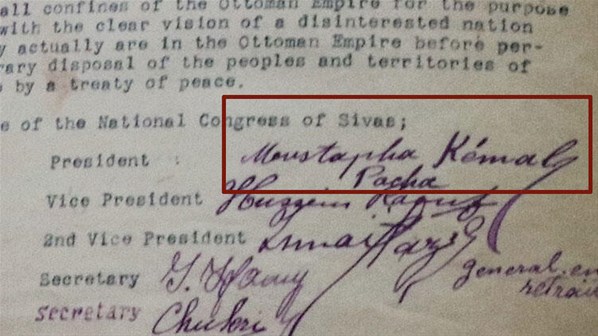 all confines of the Ottoman Empire for the purpose
with the clear vision of a disinterested nation
y actually are in the Ottoman Empire before per-
rary disposal of the peoples and territories of
by a treaty of peace.
e of the National Congress of Sivas;
President : Moustapha Kémal
Pacha
Vice President Huzzein Raouf
2nd Vice President Ismail Fazil
general en
retrait
Secretary I. Hamy
Secretary Chukri